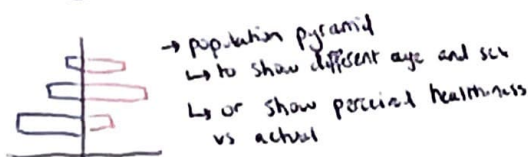 → population pyramid
↳ to show different age and sex
↳ or show perceived healthiness
vs actual